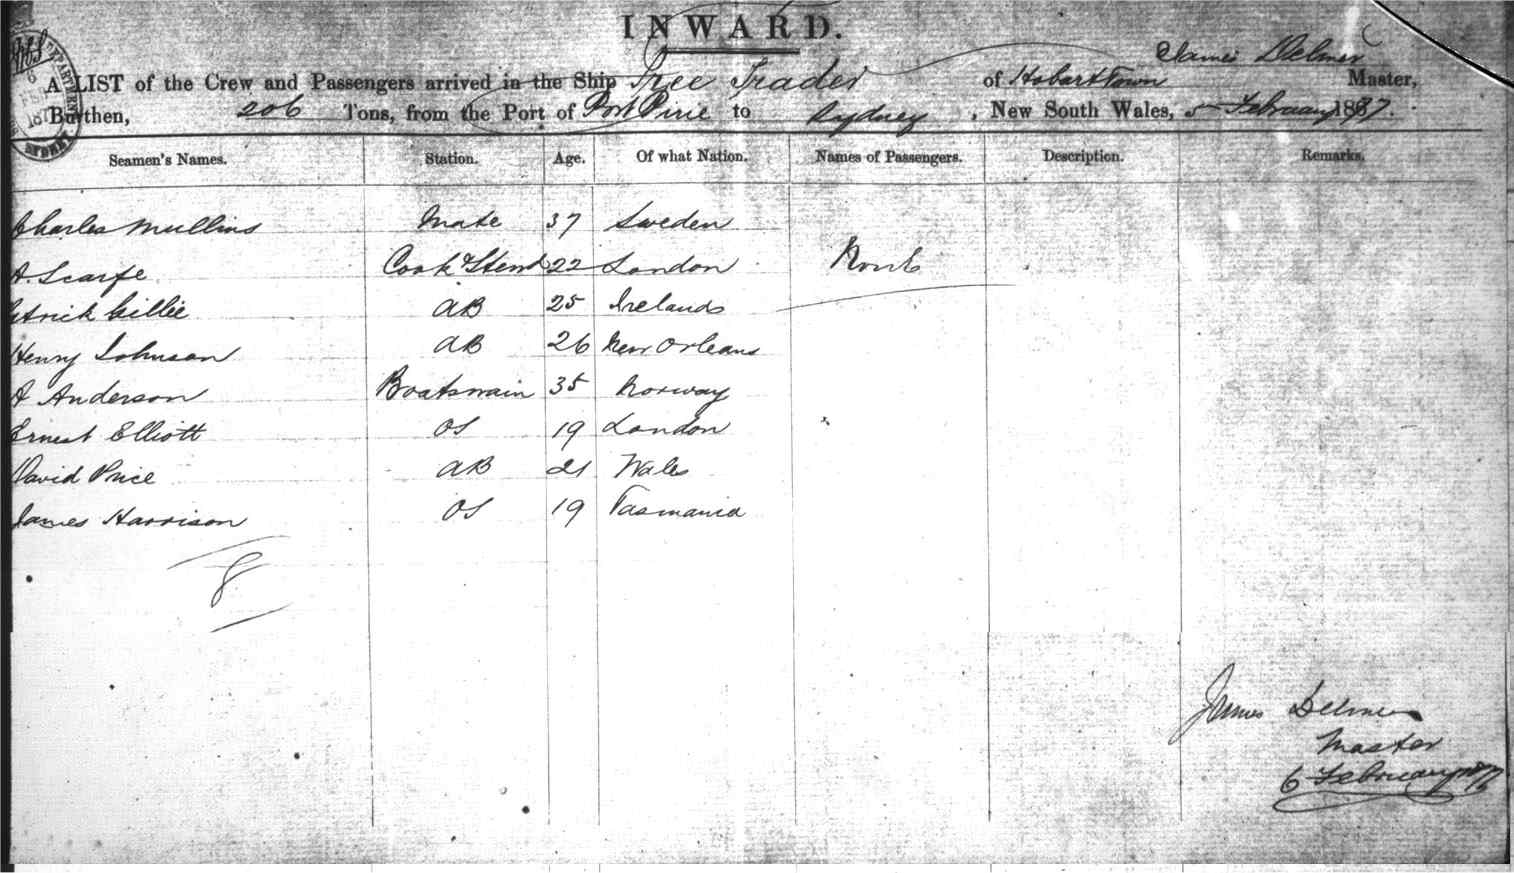 INWARD.
James Delmer
A LIST of the Crew and Passengers arrived in the Ship Free Trader of Hobart Town Master,
Burthen, 206 Tons, from the Port of Port Pirie to Sydney, New South Wales, 5 February 1877.
Seamen's Names. Station. Age. Of what Nation. Names of Passengers. Description. Remarks.
Charles Mullins Mate 37 Sweden
A. Scarfe Cook & Stewd 22 London None
atrick Gillie AB 25 Ireland
Henry Johnson AB 26 New Orleans
A Anderson Boatswain 35 Norway
Ernest Elliott OS 19 London
David Price AB 21 Wales
James Harrison OS 19 Tasmania
8
James Delmer
Master
6 February